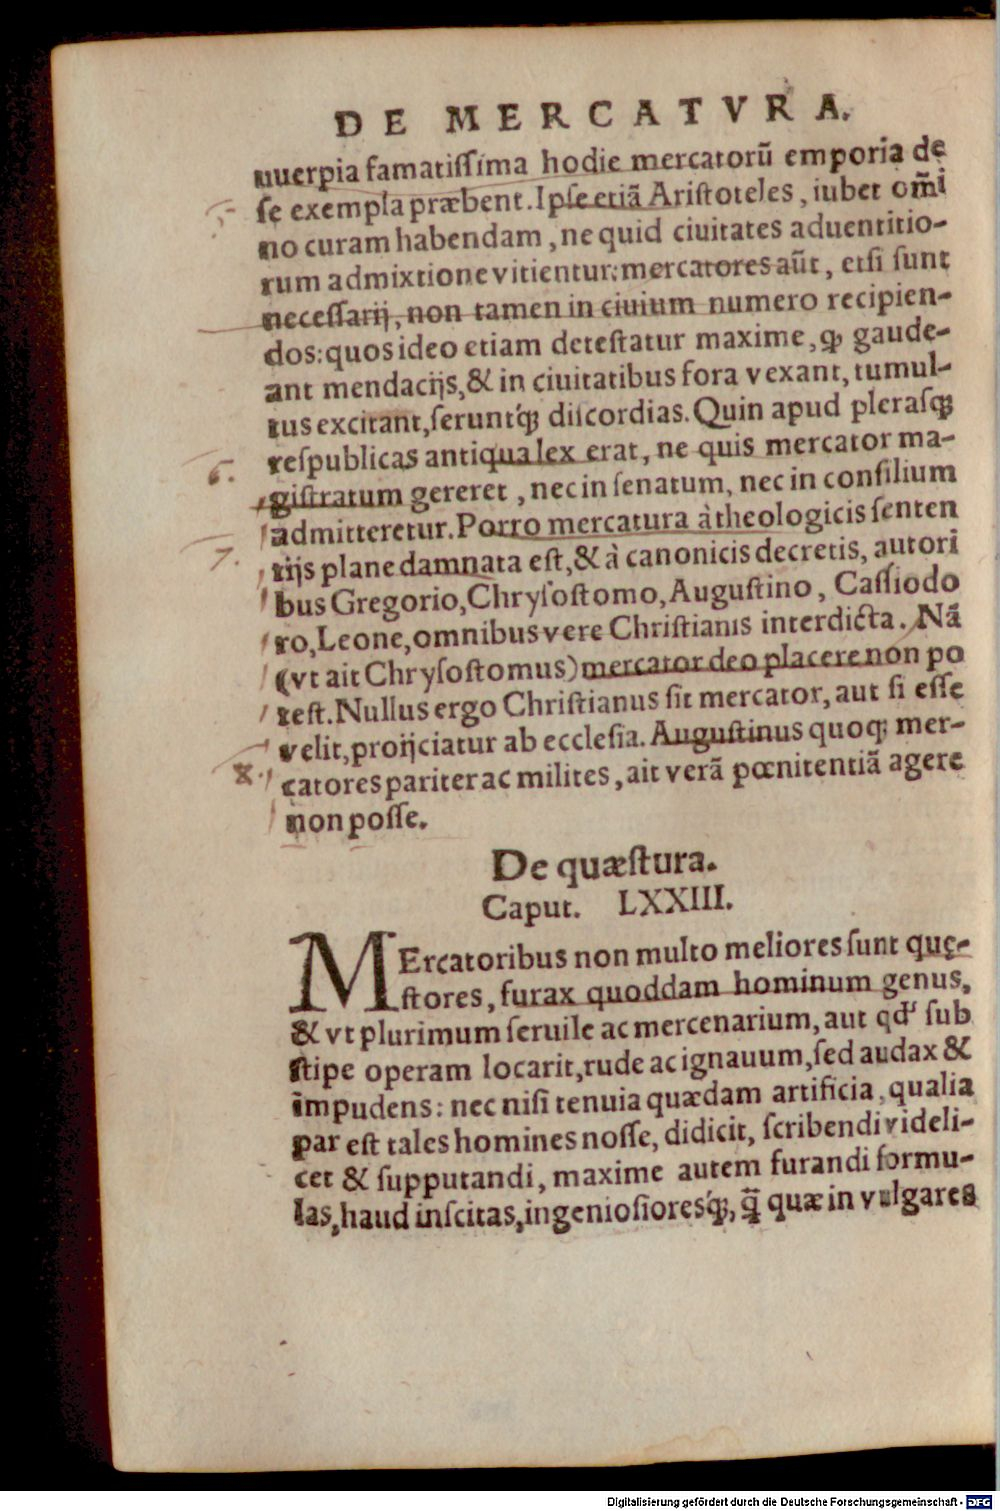 DE MERCATVRA.
nuerpia famatiſſima hodie mercatorũ emporia de
ſe exempla præbent. Ipſe etiã Ariſtoteles, iubet om̃i
no curam habendam, ne quid ciuitates aduentitio-
rum admixtione vitientur: mercatores aũt, etſi ſunt
neceſſarij, non tamen in ciuium numero recipien-
dos: quos ideo etiam deteſtatur maxime, ꝙ gaude-
ant mendacijs, & in ciuitatibus fora vexant, tumul-
tus excitant, ſeruntq́ꝫ diſcordias. Quin apud pleraſqꝫ
6. reſpublicas antiqua lex erat, ne quis mercator ma-
giſtratum gereret, nec in ſenatum, nec in conſilium
admitteretur. Porro mercatura à theologicis ſenten
7. tijs plane damnata eſt, & à canonicis decretis, autori
bus Gregorio, Chryſoſtomo, Auguſtino, Caſſiodo
ro, Leone, omnibus vere Chriſtianis interdicta. Nã
(vt ait Chryſoſtomus) mercator deo placere non po
teſt. Nullus ergo Chriſtianus ſit mercator, aut ſi eſſe
velit, proijciatur ab eccleſia. Auguſtinus quoqꝫ mer-
8. catores pariter ac milites, ait verã pœnitentiã agere
non poſſe.
De quæſtura.
Caput. LXXIII.
MErcatoribus non multo meliores ſunt quę-
ſtores, furax quoddam hominum genus,
& vt plurimum ſeruile ac mercenarium, aut qd' ſub
ſtipe operam locarit, rude ac ignauum, ſed audax &
impudens: nec niſi tenuia quædam artificia, qualia
par eſt tales homines noſſe, didicit, ſcribendi videli-
cet & ſupputandi, maxime autem furandi formu-
las, haud inſcitas, ingenioſioresq́ꝫ, q̃ quæ in vulgares
Digitalisierung gefördert durch die Deutsche Forschungsgemeinschaft - DFG